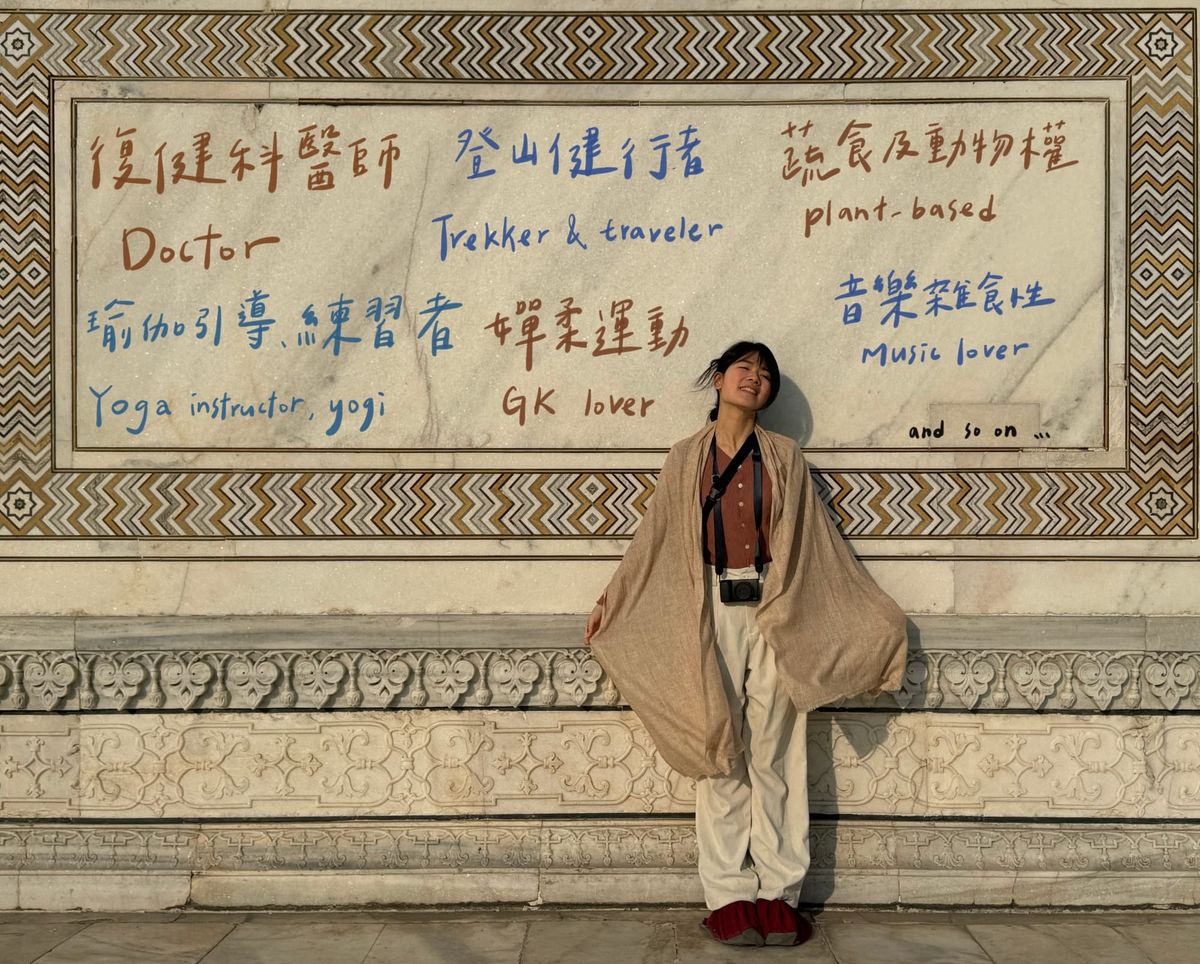 復健科醫師
Doctor
登山健行者
Trekker & traveler
蔬食及動物權
plant-based
瑜伽引導、練習者
Yoga instructor, yogi
嬋柔運動
GK lover
音樂雜食性
Music lover
and so on ...